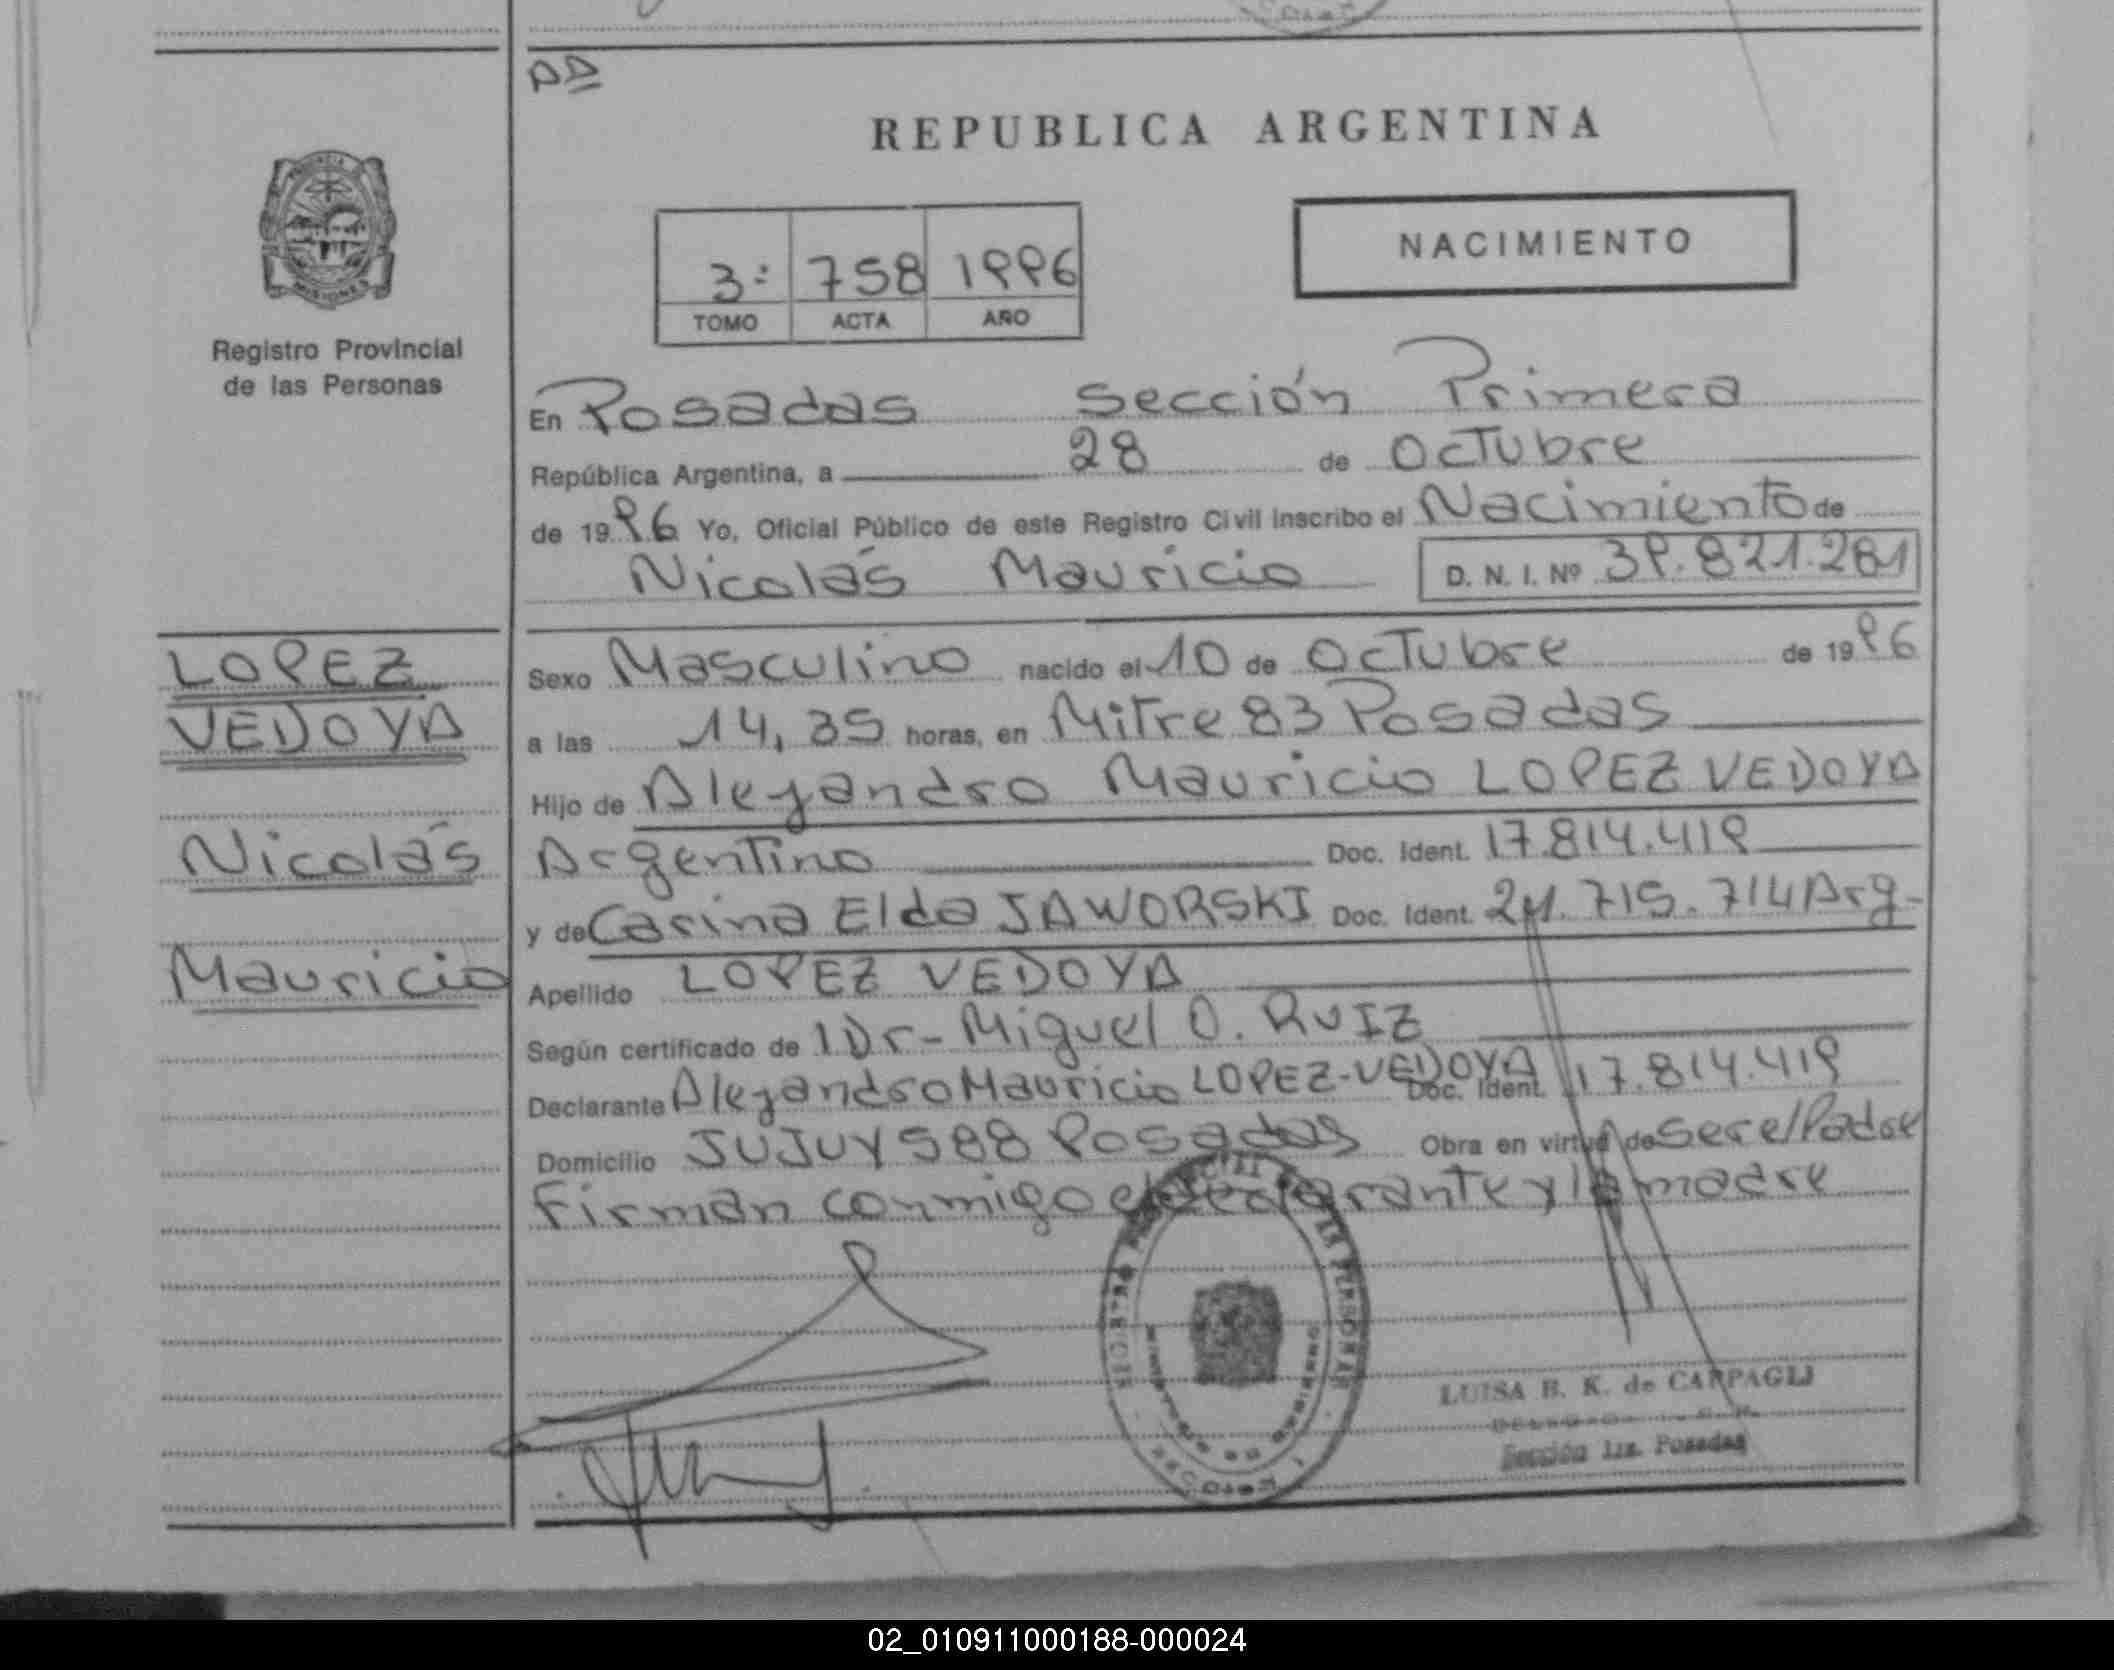 REPUBLICA ARGENTINA
PROVINCIA
MISIONES
Registro Provincial
de las Personas
3º 758 1996
TOMO ACTA AÑO
NACIMIENTO
En Posadas Sección Primera
República Argentina, a 28 de Octubre
de 1996 Yo, Oficial Público de este Registro Civil Inscribo el Nacimiento de
Nicolás Mauricio D. N. I. Nº 39.821.281
LOPEZ
VEDOYA
Nicolás
Mauricio
Sexo Masculino nacido el 10 de Octubre de 1996
a las 14,35 horas, en Mitre 83 Posadas
Hijo de Alejandro Mauricio LOPEZ VEDOYA
Argentino Doc. Ident. 17.814.419
y de Carina Elda JAWORSKI Doc. Ident. 21.715.714 Arg-
Apellido LOPEZ VEDOYA
Según certificado de l Dr- Miguel O. RUIZ
Declarante Alejandro Mauricio LOPEZ-VEDOYA Doc. Ident. 17.814.419
Domicilio JUJUY 588 Posadas Obra en virtud de ser el Padre
Firman conmigo el declarante y la madre
LUISA B. K. de CARPAGLI
Sección 1ra. Posadas
02_010911000188-000024